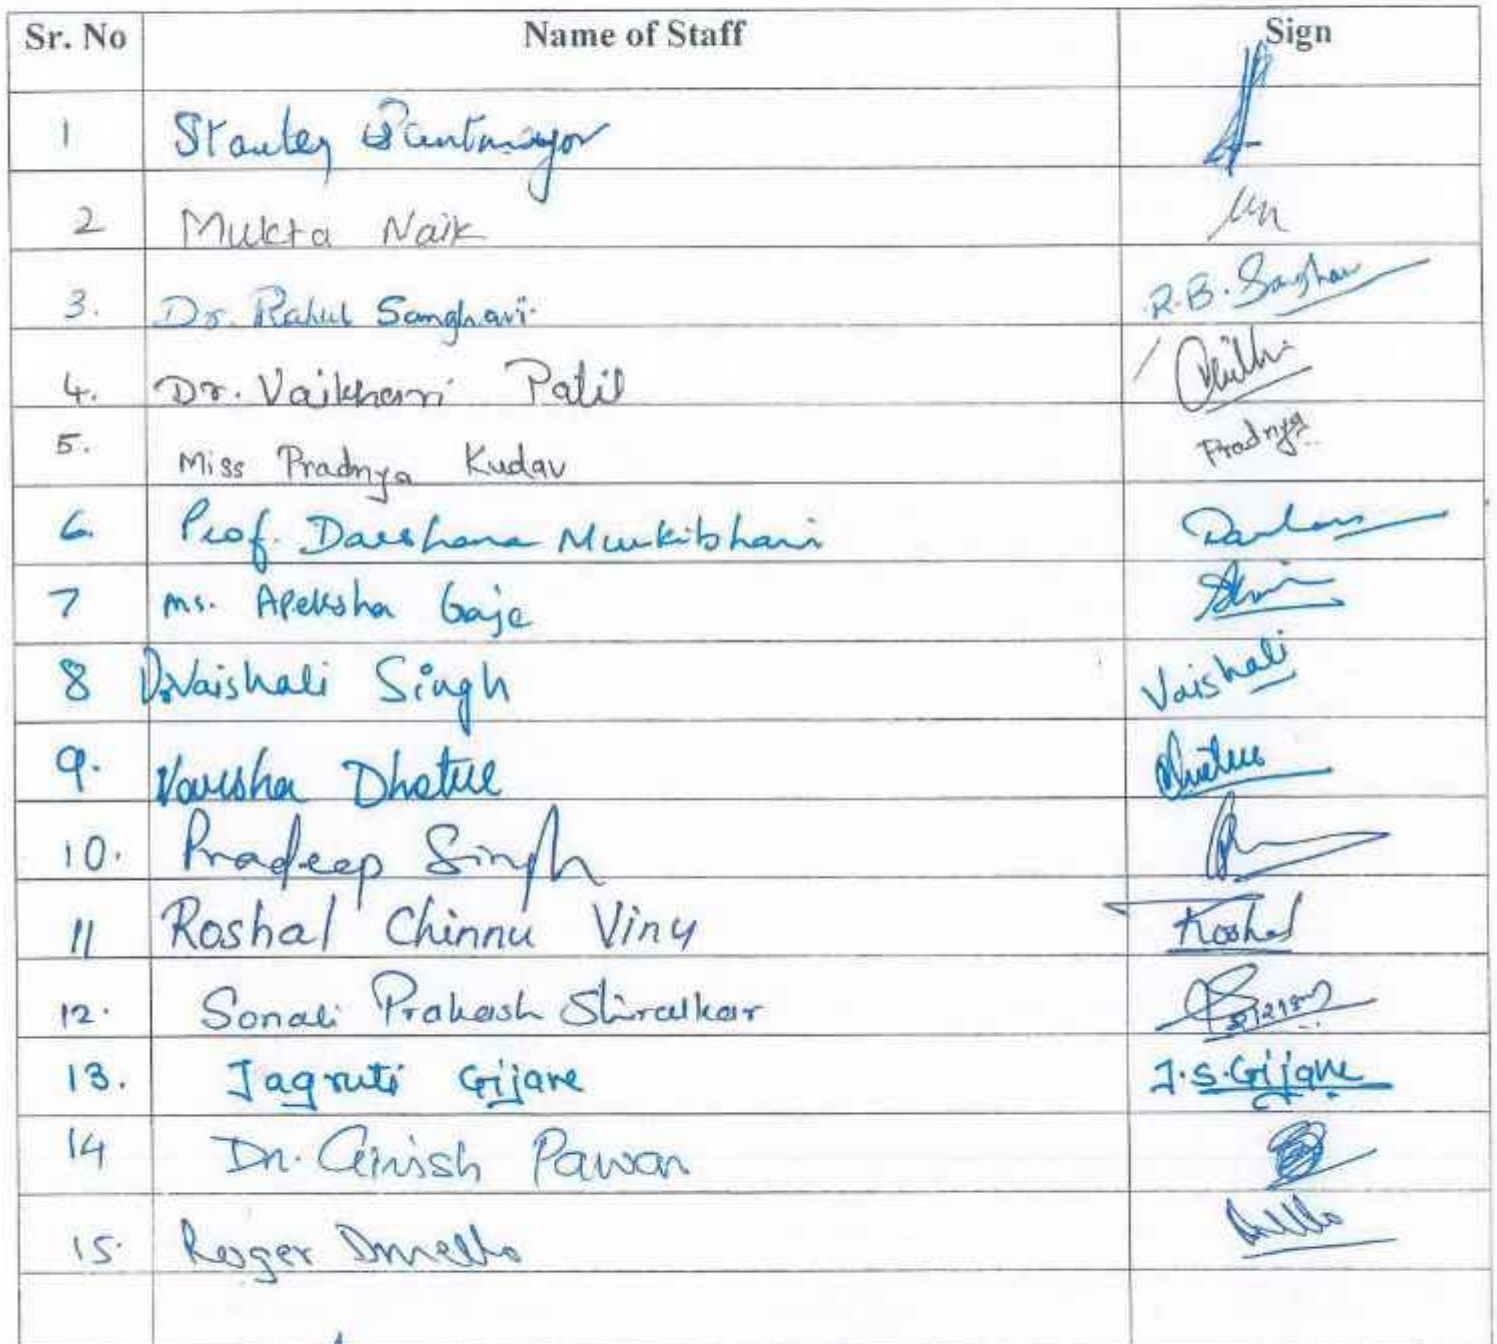 Sr. No Name of Staff Sign
1 Stanley Santmayor
2 Mukta Naik Mn
3. Dr. Rahul Sanghavi. R.B. Sanghavi
4. Dr. Vaikhari Patil
5. Miss Pradnya Kudav Pradnya
6. Prof. Darshana Mukibhari Darshana
7 Ms. Apeksha Gaje
8 Dr. Vaishali Singh Vaishali
9. Varsha Dhatue
10. Pradeep Singh
11 Roshal Chinnu Viny Roshal
12. Sonali Prakash Shiralkar
13. Jagruti Gijare J.S.Gijare
14 Dr. Girish Pawar
15. Roger Dmello